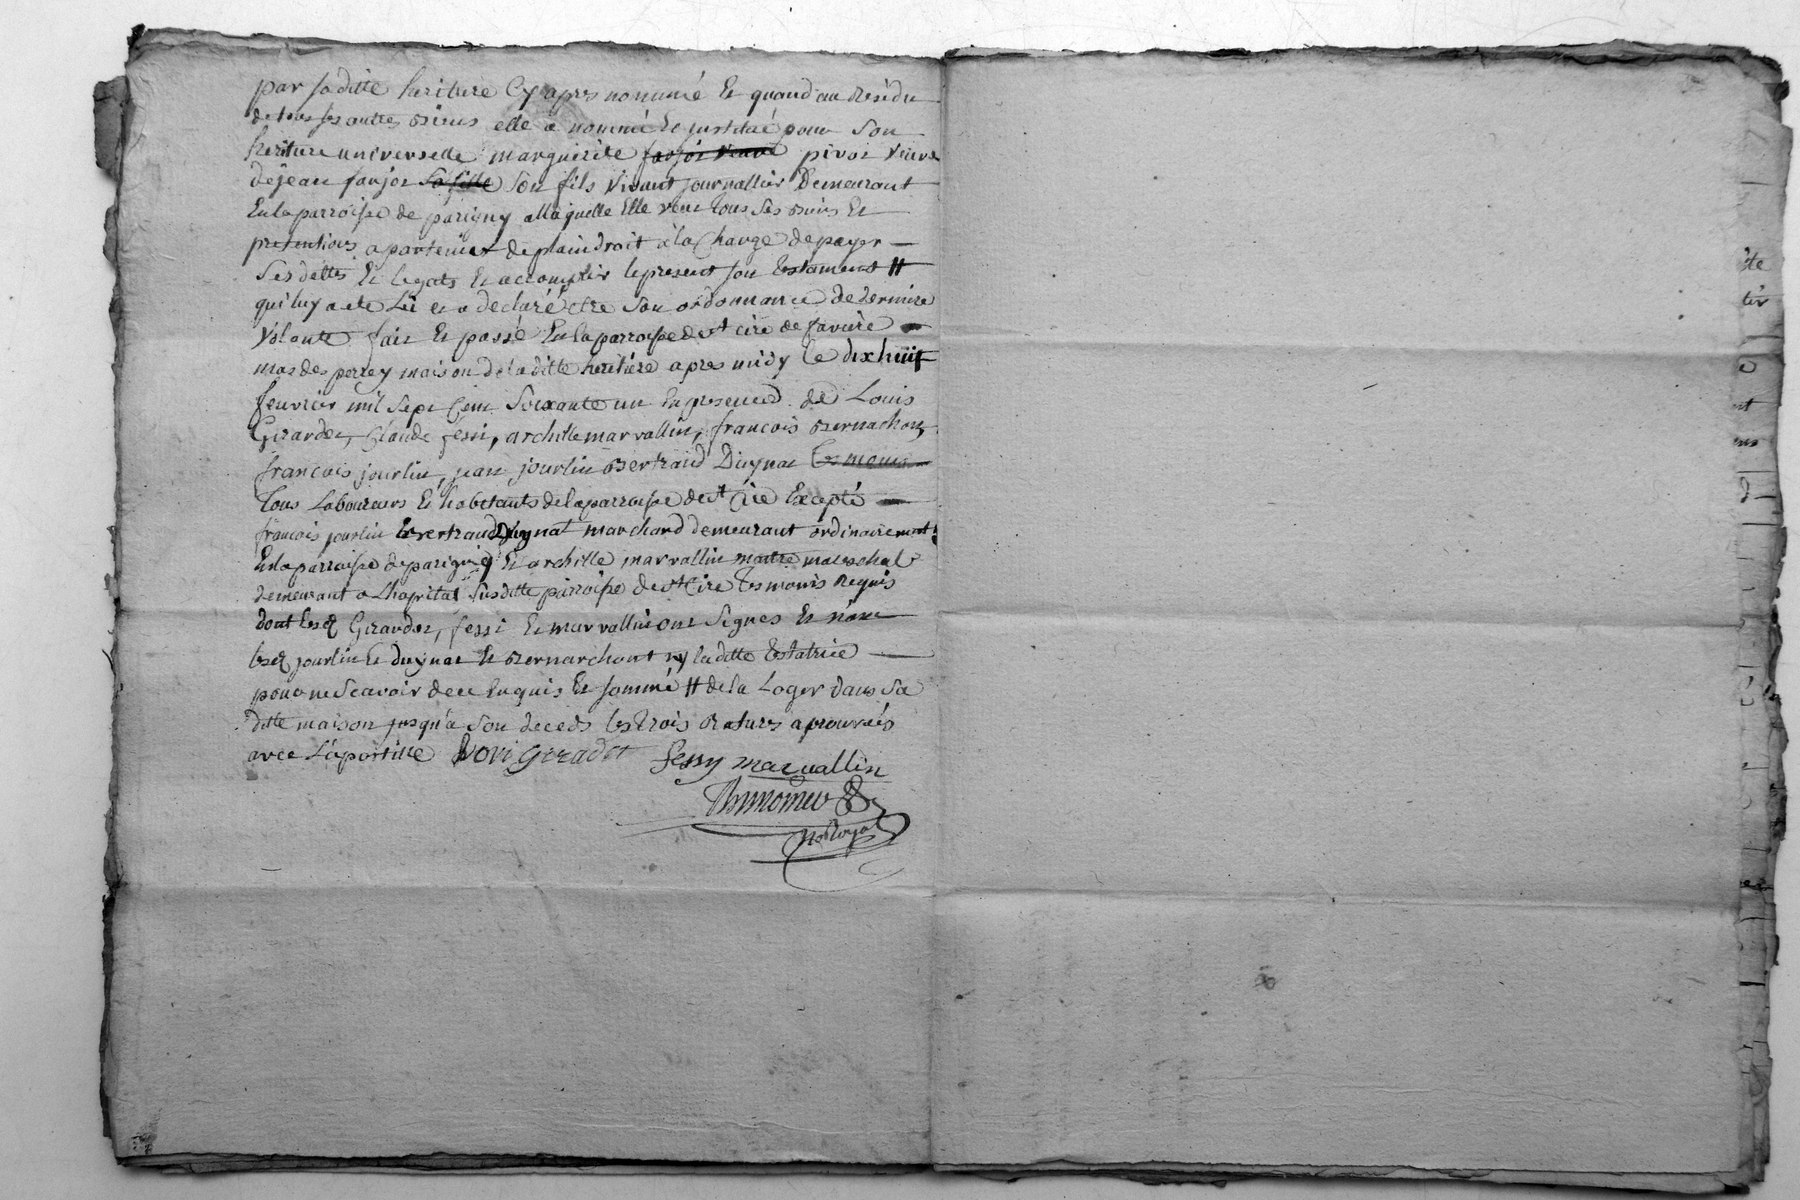 par sáditte heritiere Cy apres nommé Et quand au Residu
de tous ses autres Biens elle a nommé Et justitué pour Son
heritiere universelle marguerite farjot veuve pivot veuve
dejean farjot Sa fille Son fils vivant journallier Demeurant
En la parroisse de parigny allaquelle Elle veut Tous Ses Biens Et
pretentions apartenir de plain droit a la Charge de payer
Ses dettes Et legats Et accomplir le present son testament #
qui luy a ete Lü et a declaré étre Son ordonnance de derniere
volonte fait Et passé En la parroisse de st cire de faviere
mas des perrey maison de la ditte heritiere apres midy le dix huit
feuvrier mil Sept Cent Soixante un En presence de Louis
Girardet, Claude fessi, archille marvallin, francois Bernachon,
francois jourlin, jean jourlin Bertrand Duynat Temoins
Tous Laboureurs Et habitants de la parroisse de st Cire Excepté
francois jourlin Bertrand Duynat marchand demeurant ordinairement
En la parroisse de parigny Et archille marvallin maitre mareschal
demeurant a Lhopital Susditte parroisse de st Cire Tesmoins Requis
dont lesd Girardet, fessi Et marvallin ont Signes Et non
lesd jourlin Et duynat Et Bernarchont ny la ditte Testatrice
pour ne Scavoir de ce Enquis Et sommé # de la Loger dans Sa
ditte maison jusqu'a Son deceds les trois Ratures aprouvées
avec L'apostille Loui Giradet fessy marvallin
not Royal